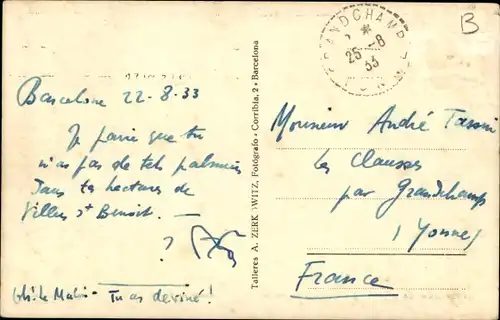 B
GRANDCHAMP
*
25-8
33
YONNE
Barcelone 22-8-33
Je parie que tu
n'as pas de tels palmiers
dans tes hectares de
Villiers St Benoit. —
?
Oh! le Malin - Tu as deviné!
Talleres A. ZERKOWITZ, Fotógrafo - Corribia, 2 - Barcelona
Monsieur André Tassin
les Clausses
par Grandchamp
(Yonne)
France